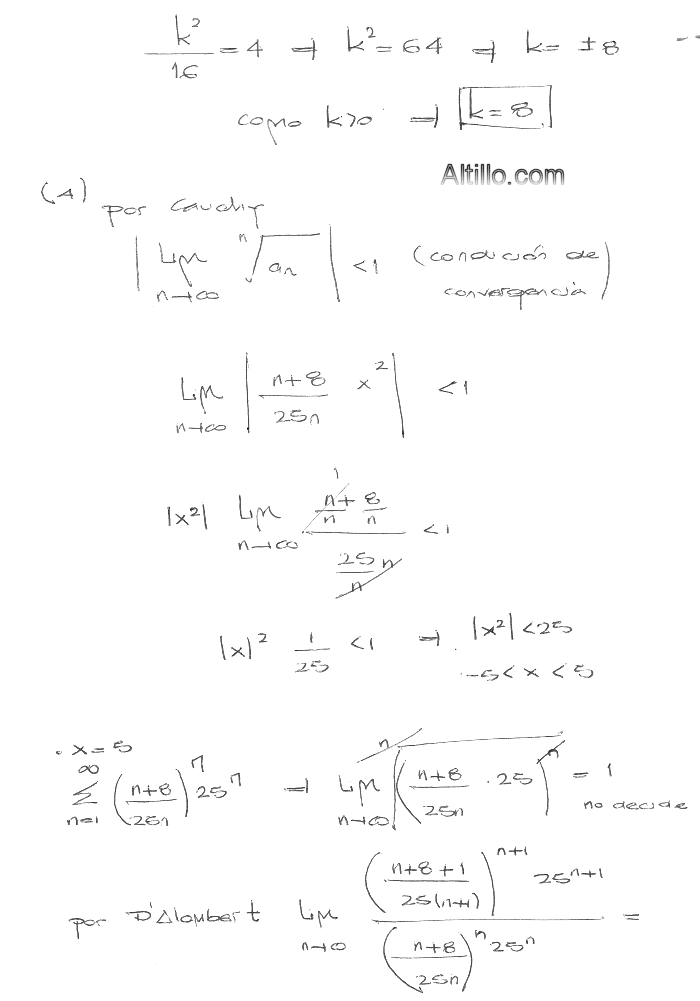 k²/16 = 4 ⇒ k² = 64 ⇒ k = ±8
como k>0 ⇒ k = 8
Altillo.com
(4) por Cauchy
| Lim n→∞ ⁿ√an | < 1 (condición de convergencia)
Lim n→∞ | (n+8)/(25n) x² | < 1
|x²| Lim n→∞ (n/n + 8/n)/(25n/n) < 1
|x|² 1/25 < 1 ⇒ |x²| < 25
-5 < x < 5
. x = 5
∞ Σ n=1 ((n+8)/(25n))ⁿ 25ⁿ ⇒ Lim n→∞ ⁿ√((n+8)/(25n) . 25)ⁿ = 1 no decide
por D'Alambert Lim n→∞ (((n+8+1)/(25(n+1)))ⁿ⁺¹ 25ⁿ⁺¹)/(((n+8)/(25n))ⁿ 25ⁿ) =